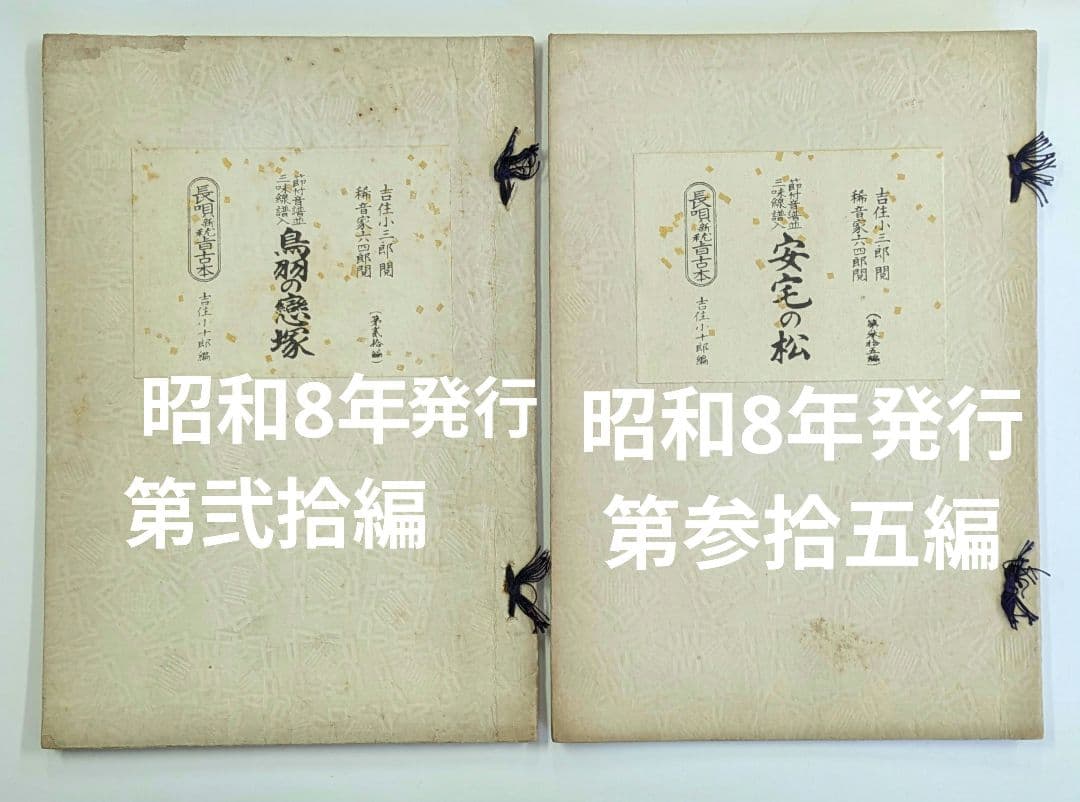 吉住小三郎 閲
稀音家六四郎閲
(第貳拾編)
節付音譜並
三味線譜入
鳥羽の戀塚
長唄新稽古本
吉住小十郎編
昭和8年発行
第弐拾編
吉住小三郎 閲
稀音家六四郎閲
(第参拾五編)
節付音譜並
三味線譜入
安宅の松
長唄新稽古本
吉住小十郎編
昭和8年発行
第参拾五編